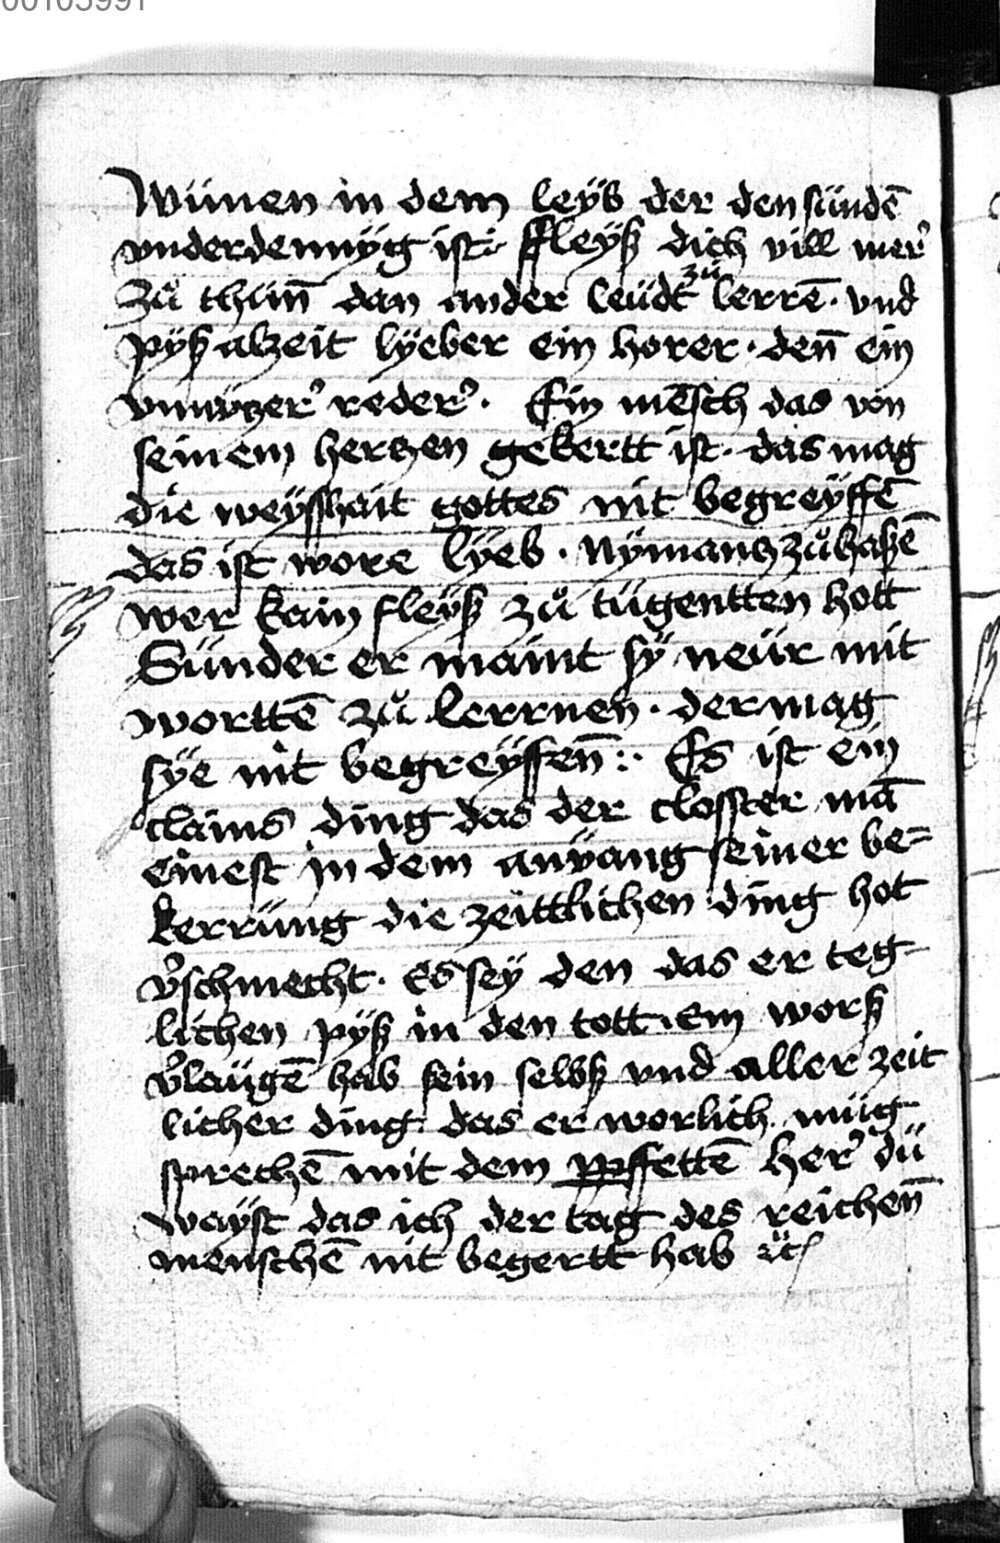 00103991
wünen in dem leÿb der den sündē
vnderdennÿg ist :· ffleÿß dich vill mer̉
Zů thün̄ dan ander leüdt zů lerrē · vnd
pÿß alzeit lÿeber ein horer · den̄ ein
vnnüczer̉ reder̉ · Ein mēsch das von
seinem hertzen gekertt ist · das mag
die weÿsshait gottes nit begreÿffē
das ist wore lÿeb · Nÿmantz zů haßē
wer kain fleÿß zů tügentten hott
Sünder er maint sÿ neür mit
worttē zů lerrnen · der mag
sÿe nit begreÿffen̄ :· Es ist ein
clains ding das der closster mā
einest in dem anüang seiner be=
kerrüng die zeittlichen ding hot
v̉schmecht · Es seÿ den das er teg-
lichen pÿß in den tott · Em worß
v̉laügē hab sein selbß vnd aller zeit
licher ding das er worlich müg
sprechē mit dem ꝓffettē Her̉ dü
wayst das ich der tag des reichen̄
menschē nit begertt hab ꝛc̃